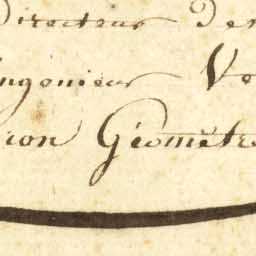 Directeur De
ngenieur Ve
ron Géometre